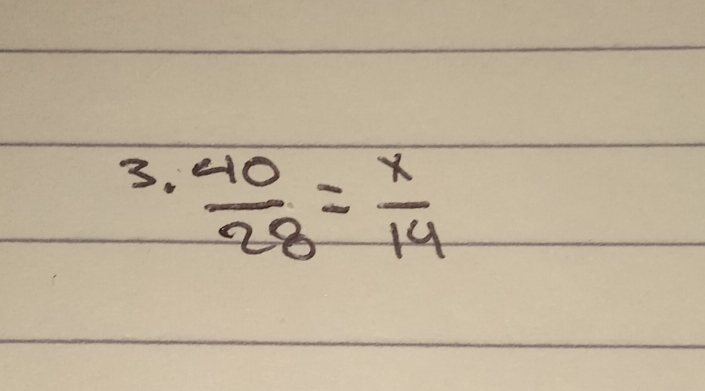 3. 40/28 = x/14